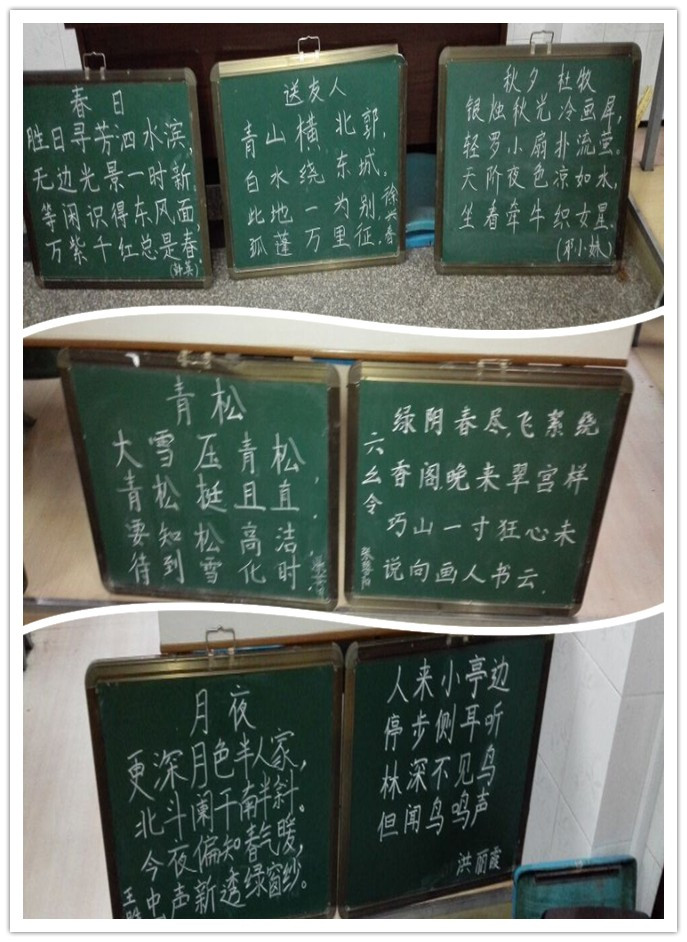 春日
胜日寻芳泗水滨,
无边光景一时新.
等闲识得东风面,
万紫千红总是春
送友人
青山横北郭,
白水绕东城。
此地一为别,
孤蓬万里征.
徐兴春
秋夕 杜牧
银烛秋光冷画犀,
轻罗小扇扑流萤。
天阶夜色凉如水,
坐看牵牛织女星.
(邓小妹)
青松
大雪压青松
青松挺且直.
要知松高洁
待到雪化时.
六幺令
绿阴春尽,飞絮绕
香阁,晚来翠宫样
巧山一寸狂心未
说向画人书云.
月夜
更深月色半人家,
北斗阑干南半斜.
今夜偏知春气暖,
虫声新透绿窗纱。
人来小亭边
停步侧耳听
林深不见鸟
但闻鸟鸣声
洪丽霞